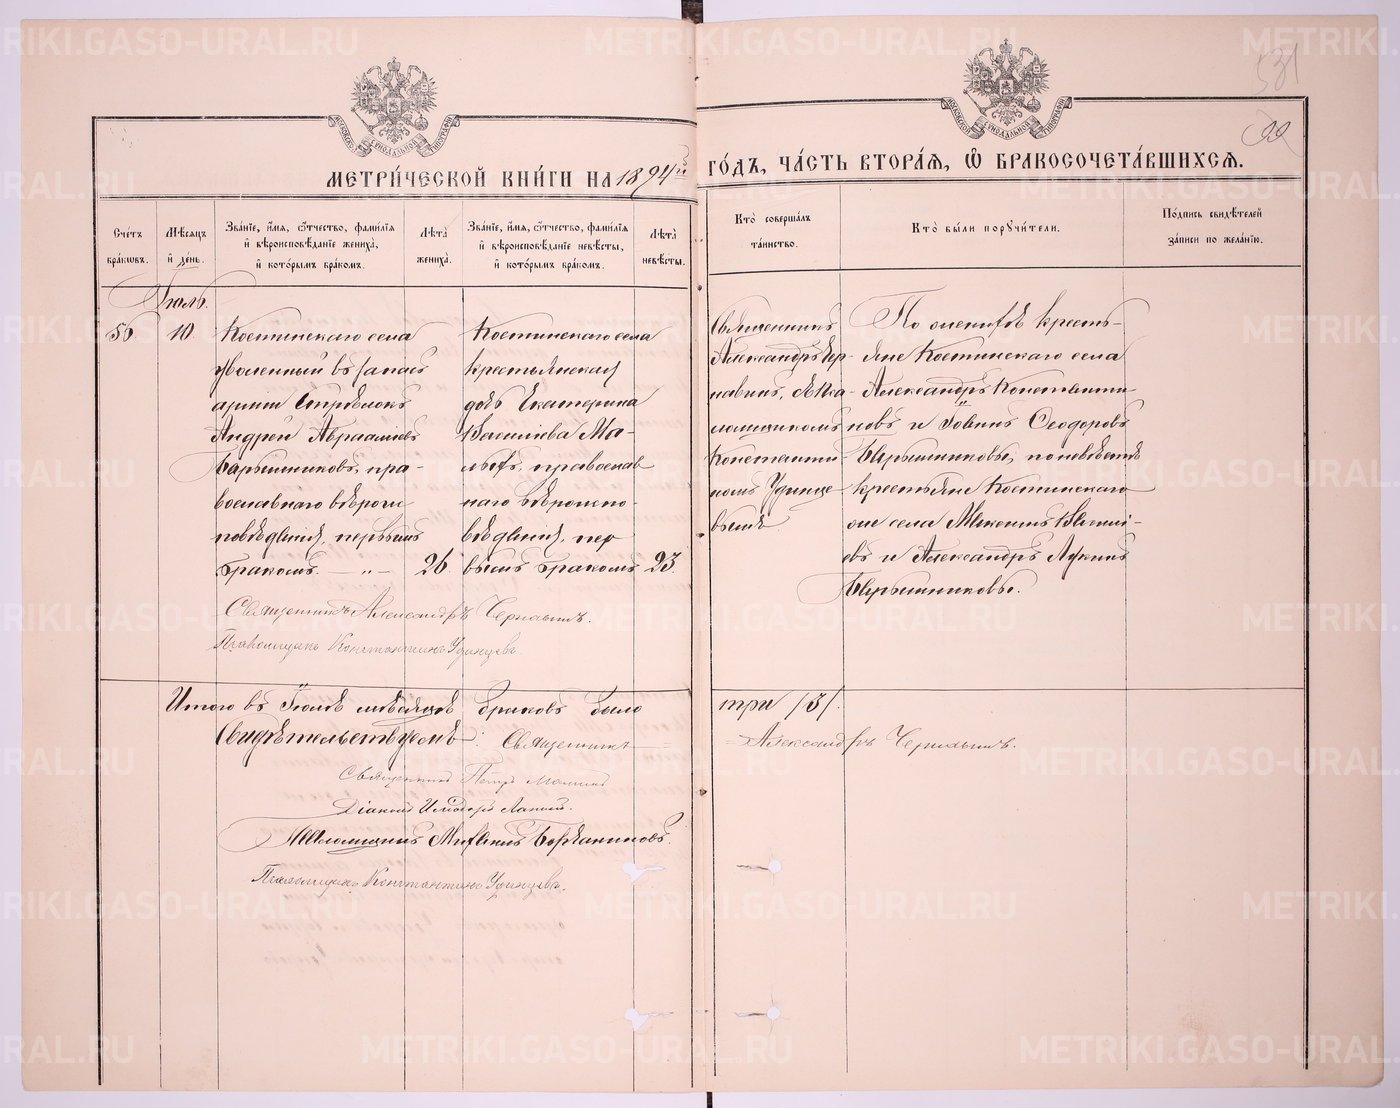 531
22
МОСКОВСКОЙ СѴНОДАЛЬНОЙ ТИПОГРАФІИ
МОСКОВСКОЙ СѴНОДАЛЬНОЙ ТИПОГРАФІИ
МЕТРИ́ЧЕСКОЙ КНИ́ГИ НА 1894й ГО́ДЪ, ЧА́СТЬ ВТОРА́Ѧ, Ѽ БРАКОСОЧЕТА́ВШИХСѦ.
Сче́тъ бра́кѡвъ.
Мѣ́сѧцъ и҆ де́нь.
Зва́нїе, и҆́мѧ, ѻ҆́тчество, фами́лїѧ и҆ вѣроисповѣ́данїе жениха̀, и҆ кото́рымъ бра́комъ.
Лѣ́та жениха̀.
Зва́нїе, и҆́мѧ, ѻ҆́тчество, фами́лїѧ и҆ вѣроисповѣ́данїе невѣ́сты, и҆ кото́рымъ бра́комъ.
Лѣ́та невѣ́сты.
Кто̀ соверша́лъ та́инство.
Кто̀ бы́ли порꙋчи́тели.
По́дпись свидѣ́телей за́писи по жела́нїю.
Іюль.
50
10.
Костинскаго села
уволенный въ запасъ
арміи Стрѣлокъ
Андрей Авраамiевъ
Барышниковъ, пра-
вославнаго вѣроис
повѣданія, первымъ
бракомъ. „—
26.
Костинскаго села
крестьянская
дочь Екатерина
Василіева Ма-
лыхъ, православ
наго вѣроиспо-
вѣданія, пер
вымъ бракомъ
23.
Священникъ
Александръ Чер-
навинъ, съ Пса-
ломщикомъ
Константи
номъ Удинце
вымъ
По женихѣ кресть-
яне Костинскаго села
Александръ Константи
новъ и Іовинъ Ѳеодоровъ
Барышниковы, по невѣстѣ
крестьяне Костинскаго
же села Максимъ Василі-
евъ и Александръ Лукинъ
Барышниковы.
Священникъ Александръ Чернавинъ.
Псаломщикъ Константинъ Удинцевъ.
Итого въ Іюлѣ мѣсяцѣ браковъ было три /3/.
Свидѣтельствуемъ: Священникъ Александръ Чернавинъ.
Священникъ Петръ
Діаконъ
Псаломщикъ
Псаломщикъ Константинъ Удинцевъ.
METRIKI.GASO-URAL.RU